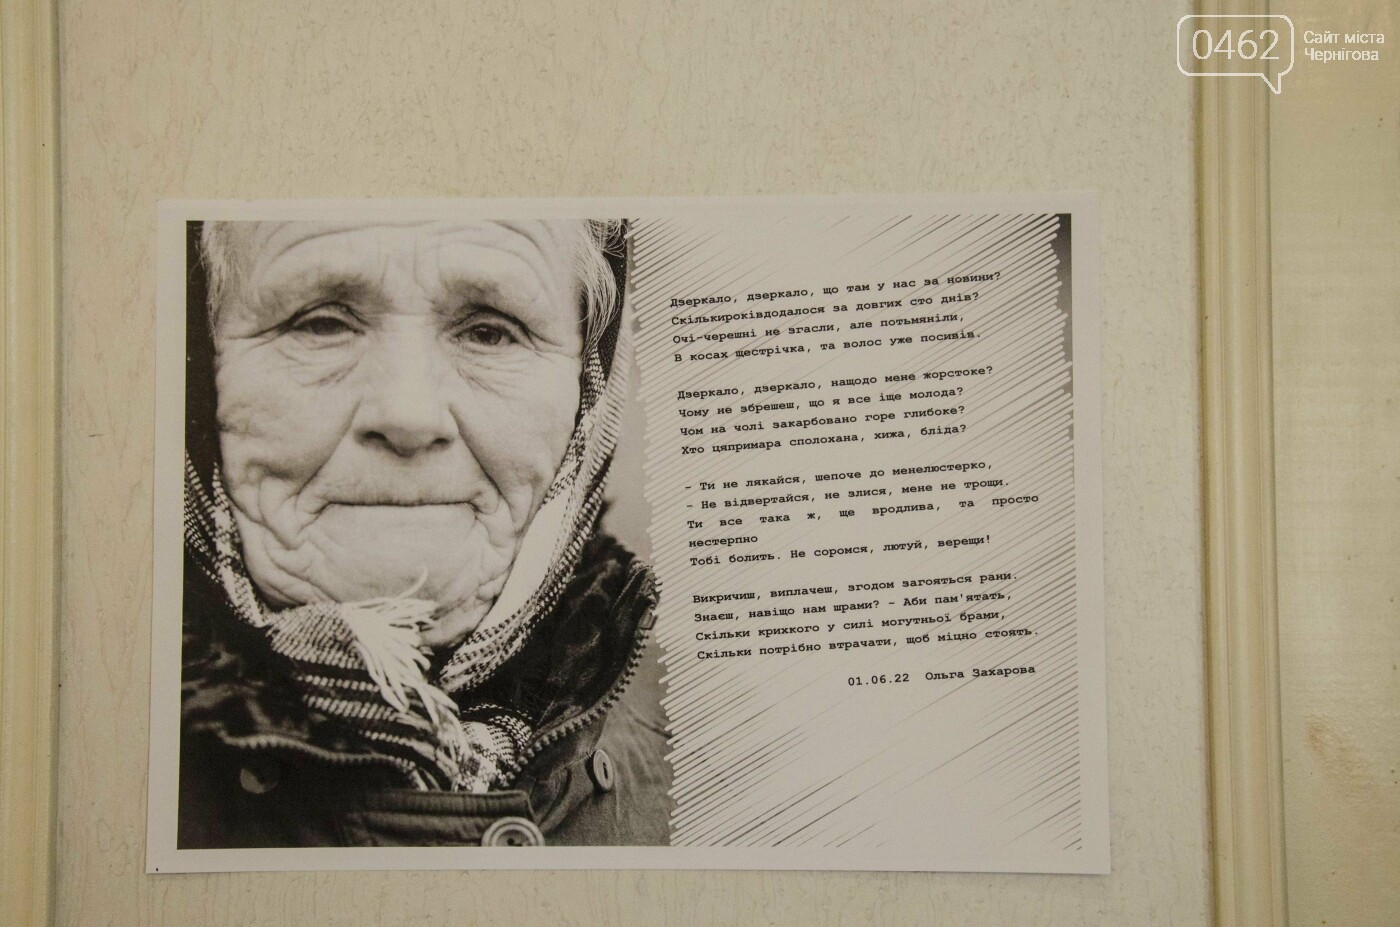 0462
Сайт міста
Чернігова
Дзеркало, дзеркало, що там у нас за новини?
Скількироківдодалося за довгих сто днів?
Очі-черешні не згасли, але потьмяніли,
В косах щестрічка, та волос уже посивів.
Дзеркало, дзеркало, нащодо мене жорстоке?
Чому не збрешеш, що я все іще молода?
Чом на чолі закарбовано горе глибоке?
Хто цяпримара сполохана, хижа, бліда?
– Ти не лякайся, шепоче до менелюстерко,
– Не відвертайся, не злися, мене не трощи.
Ти все така ж, ще вродлива, та просто
нестерпно
Тобі болить. Не соромся, лютуй, верещи!
Викричиш, виплачеш, згодом загояться рани.
Знаєш, навіщо нам шрами? – Аби пам'ятать,
Скільки крихкого у силі могутньої брами,
Скільки потрібно втрачати, щоб міцно стоять.
01.06.22 Ольга Захарова